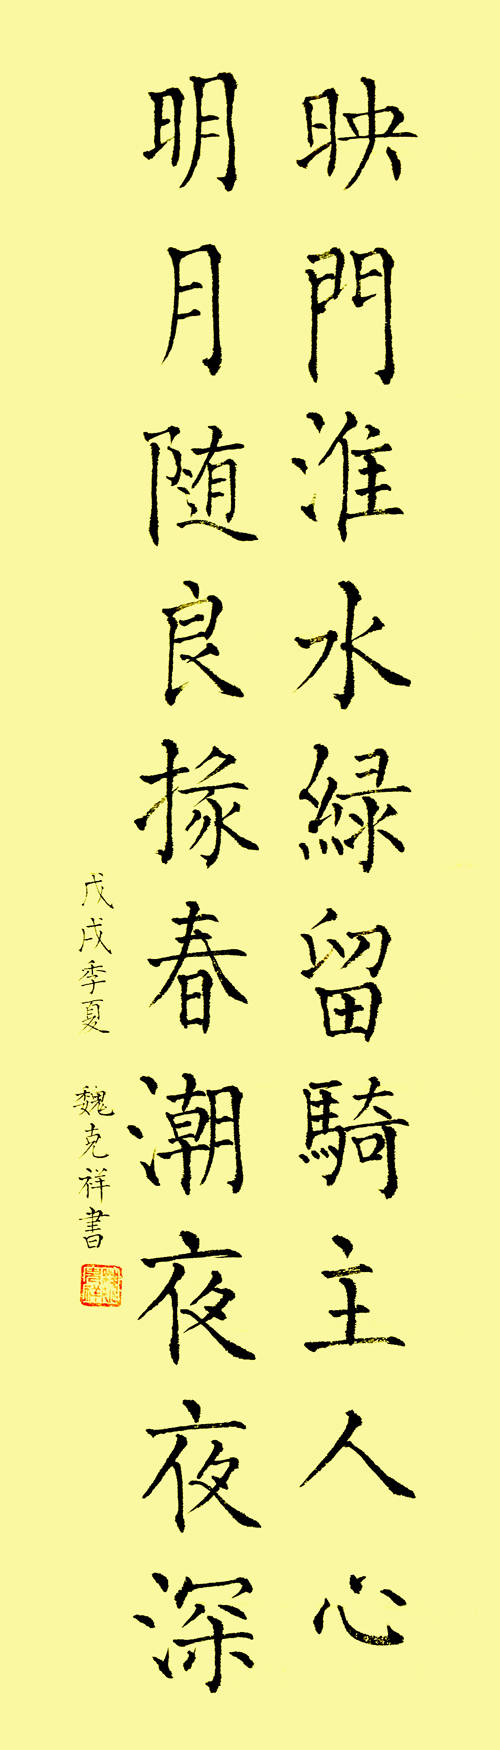 映門淮水緑留騎主人心
明月随良掾春潮夜夜深
戊戌季夏 魏克祥書